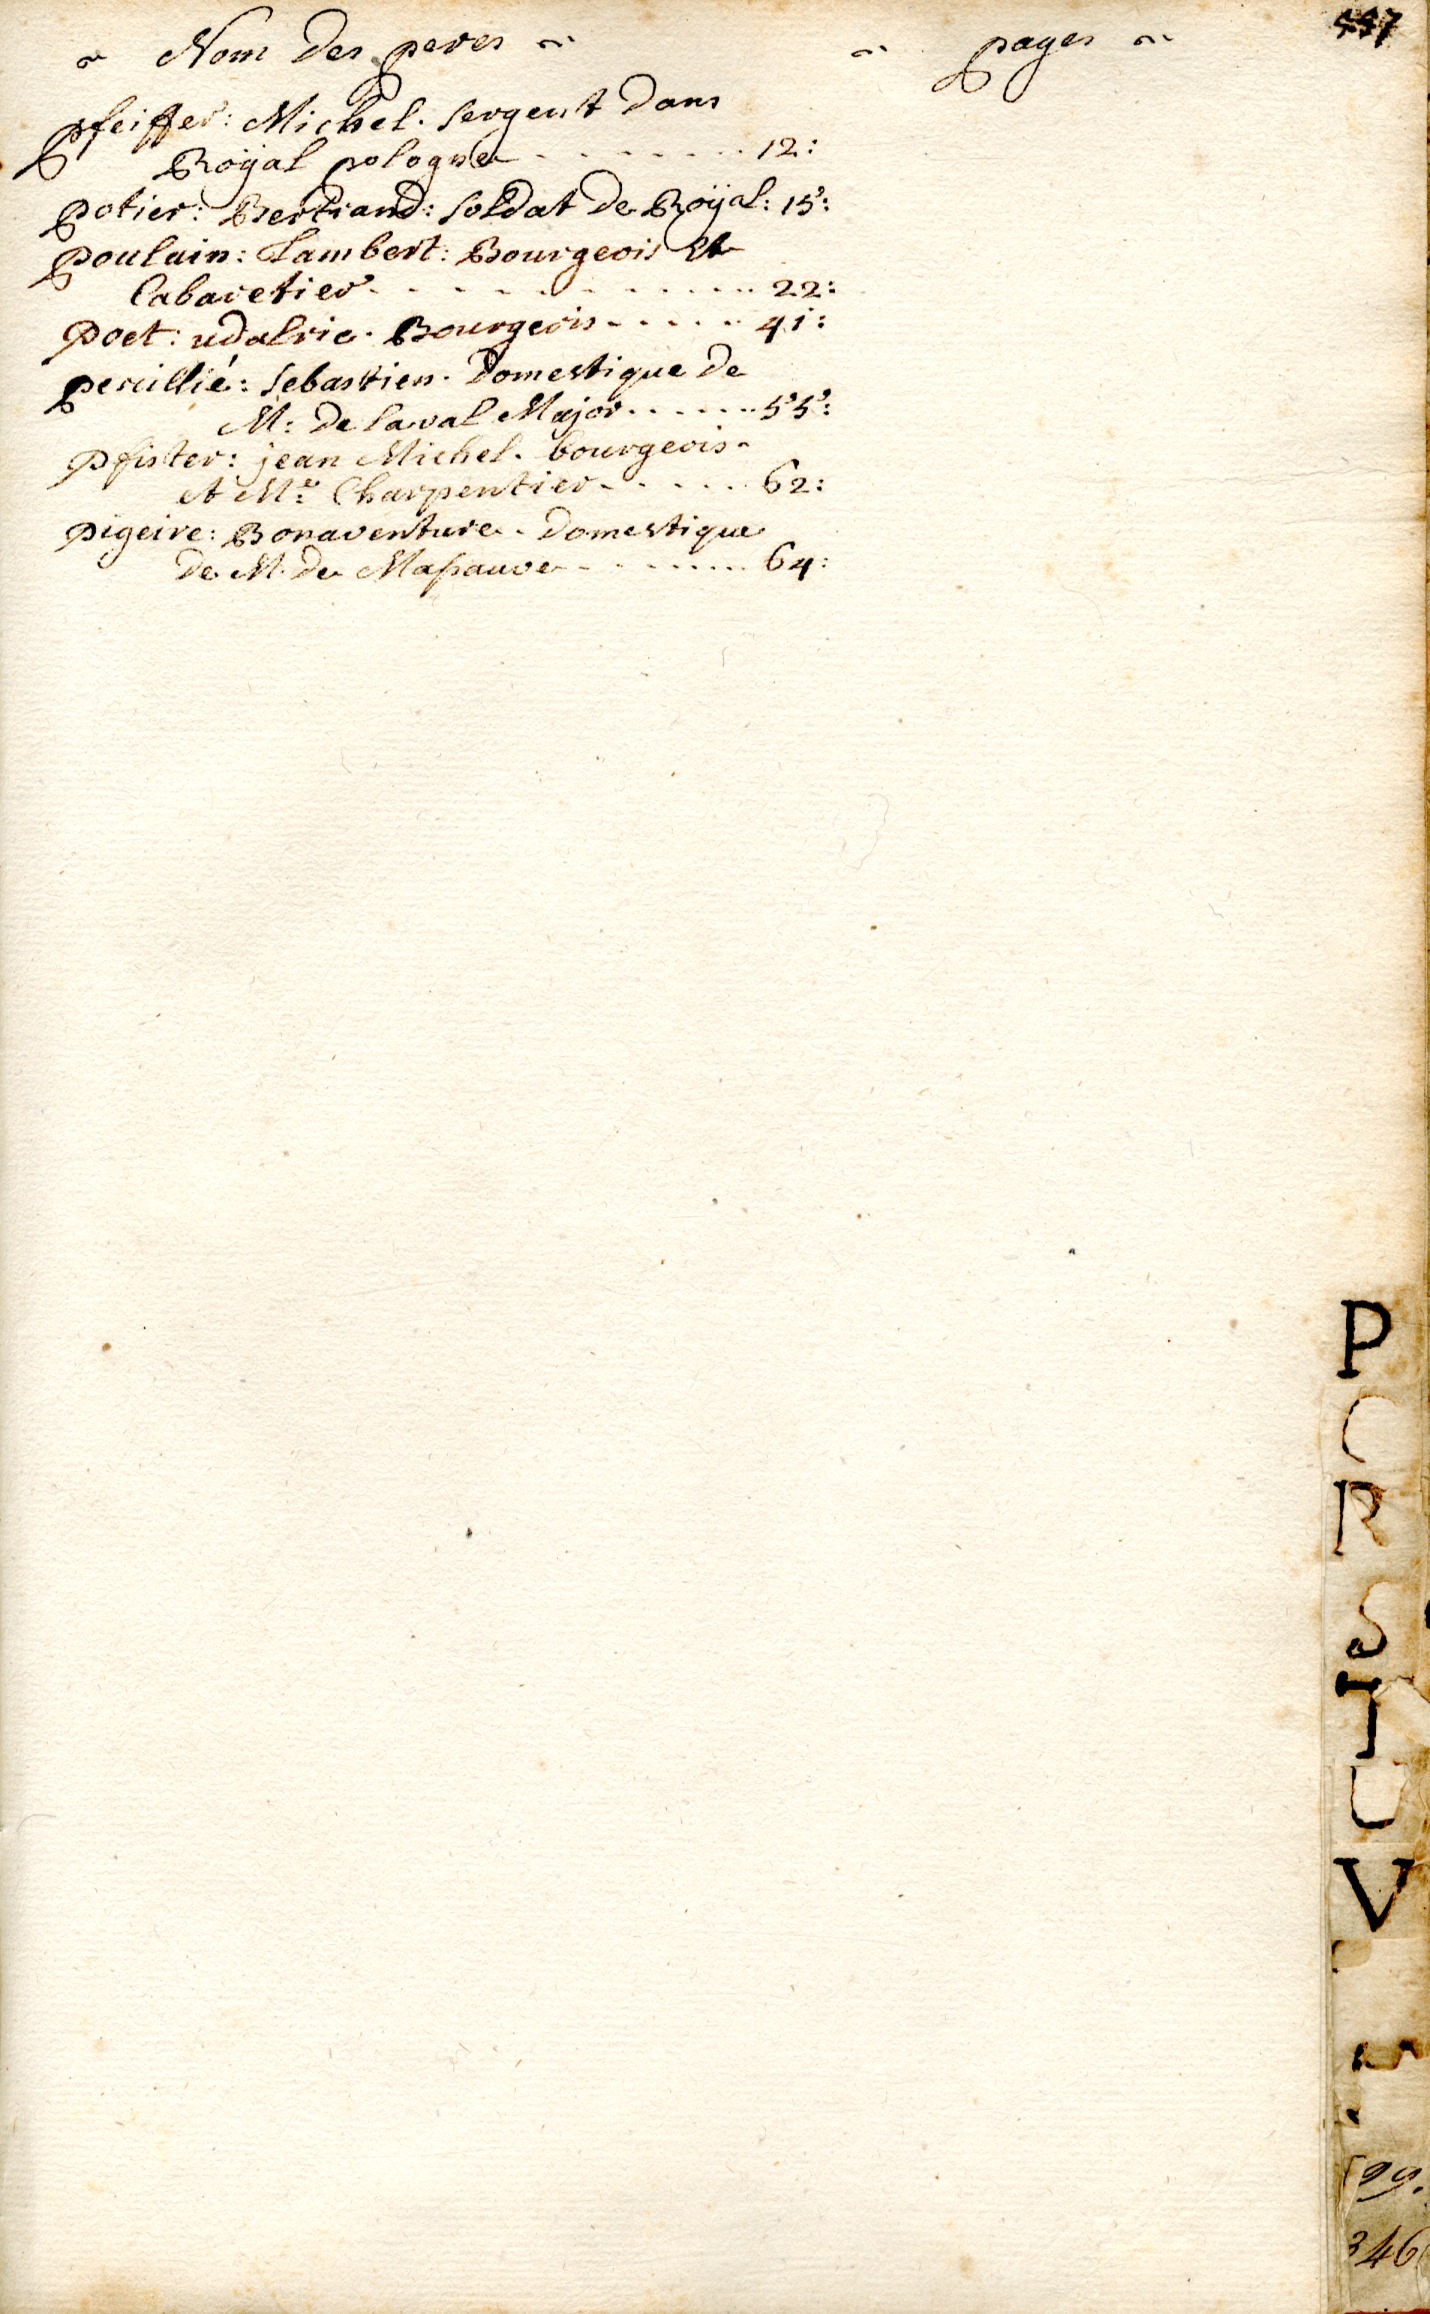 Nom des peres
pages
447
pfeiffer: Michel. sergent dans
Roÿal pologne - - - - - - - - 12:
potier: Bertrand: soldat de Roÿal: 15:
poulain: Lambert: Bourgeois et
Cabaretier - - - - - - - - - - 22:
poet: udalric. Bourgeois - - - - - 41:
percillié: sebastien. Domestique de
M: de laval Major - - - - - - 55:
pfister: jean Michel. bourgeois
et M.e Charpentier - - - - - 62:
pigeire: Bonaventure. Domestique
de M. de Massauve - - - - - - - 64:
P
R
S
T
U
V
99.
346